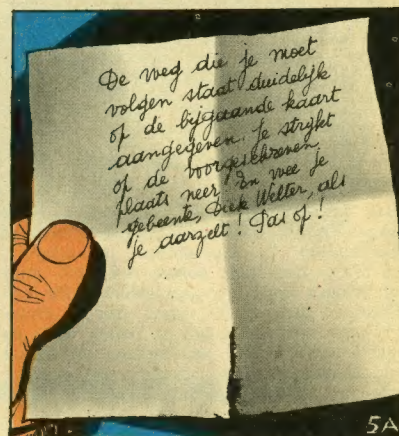 De weg die je moet
volgen staat duidelijk
op de bijgaande kaart
aangegeven. Je strijkt
op de voorgeschreven
plaats neer. En wee je
gebeente, Dick Welter, als
je aarzelt! Pas op!
5A